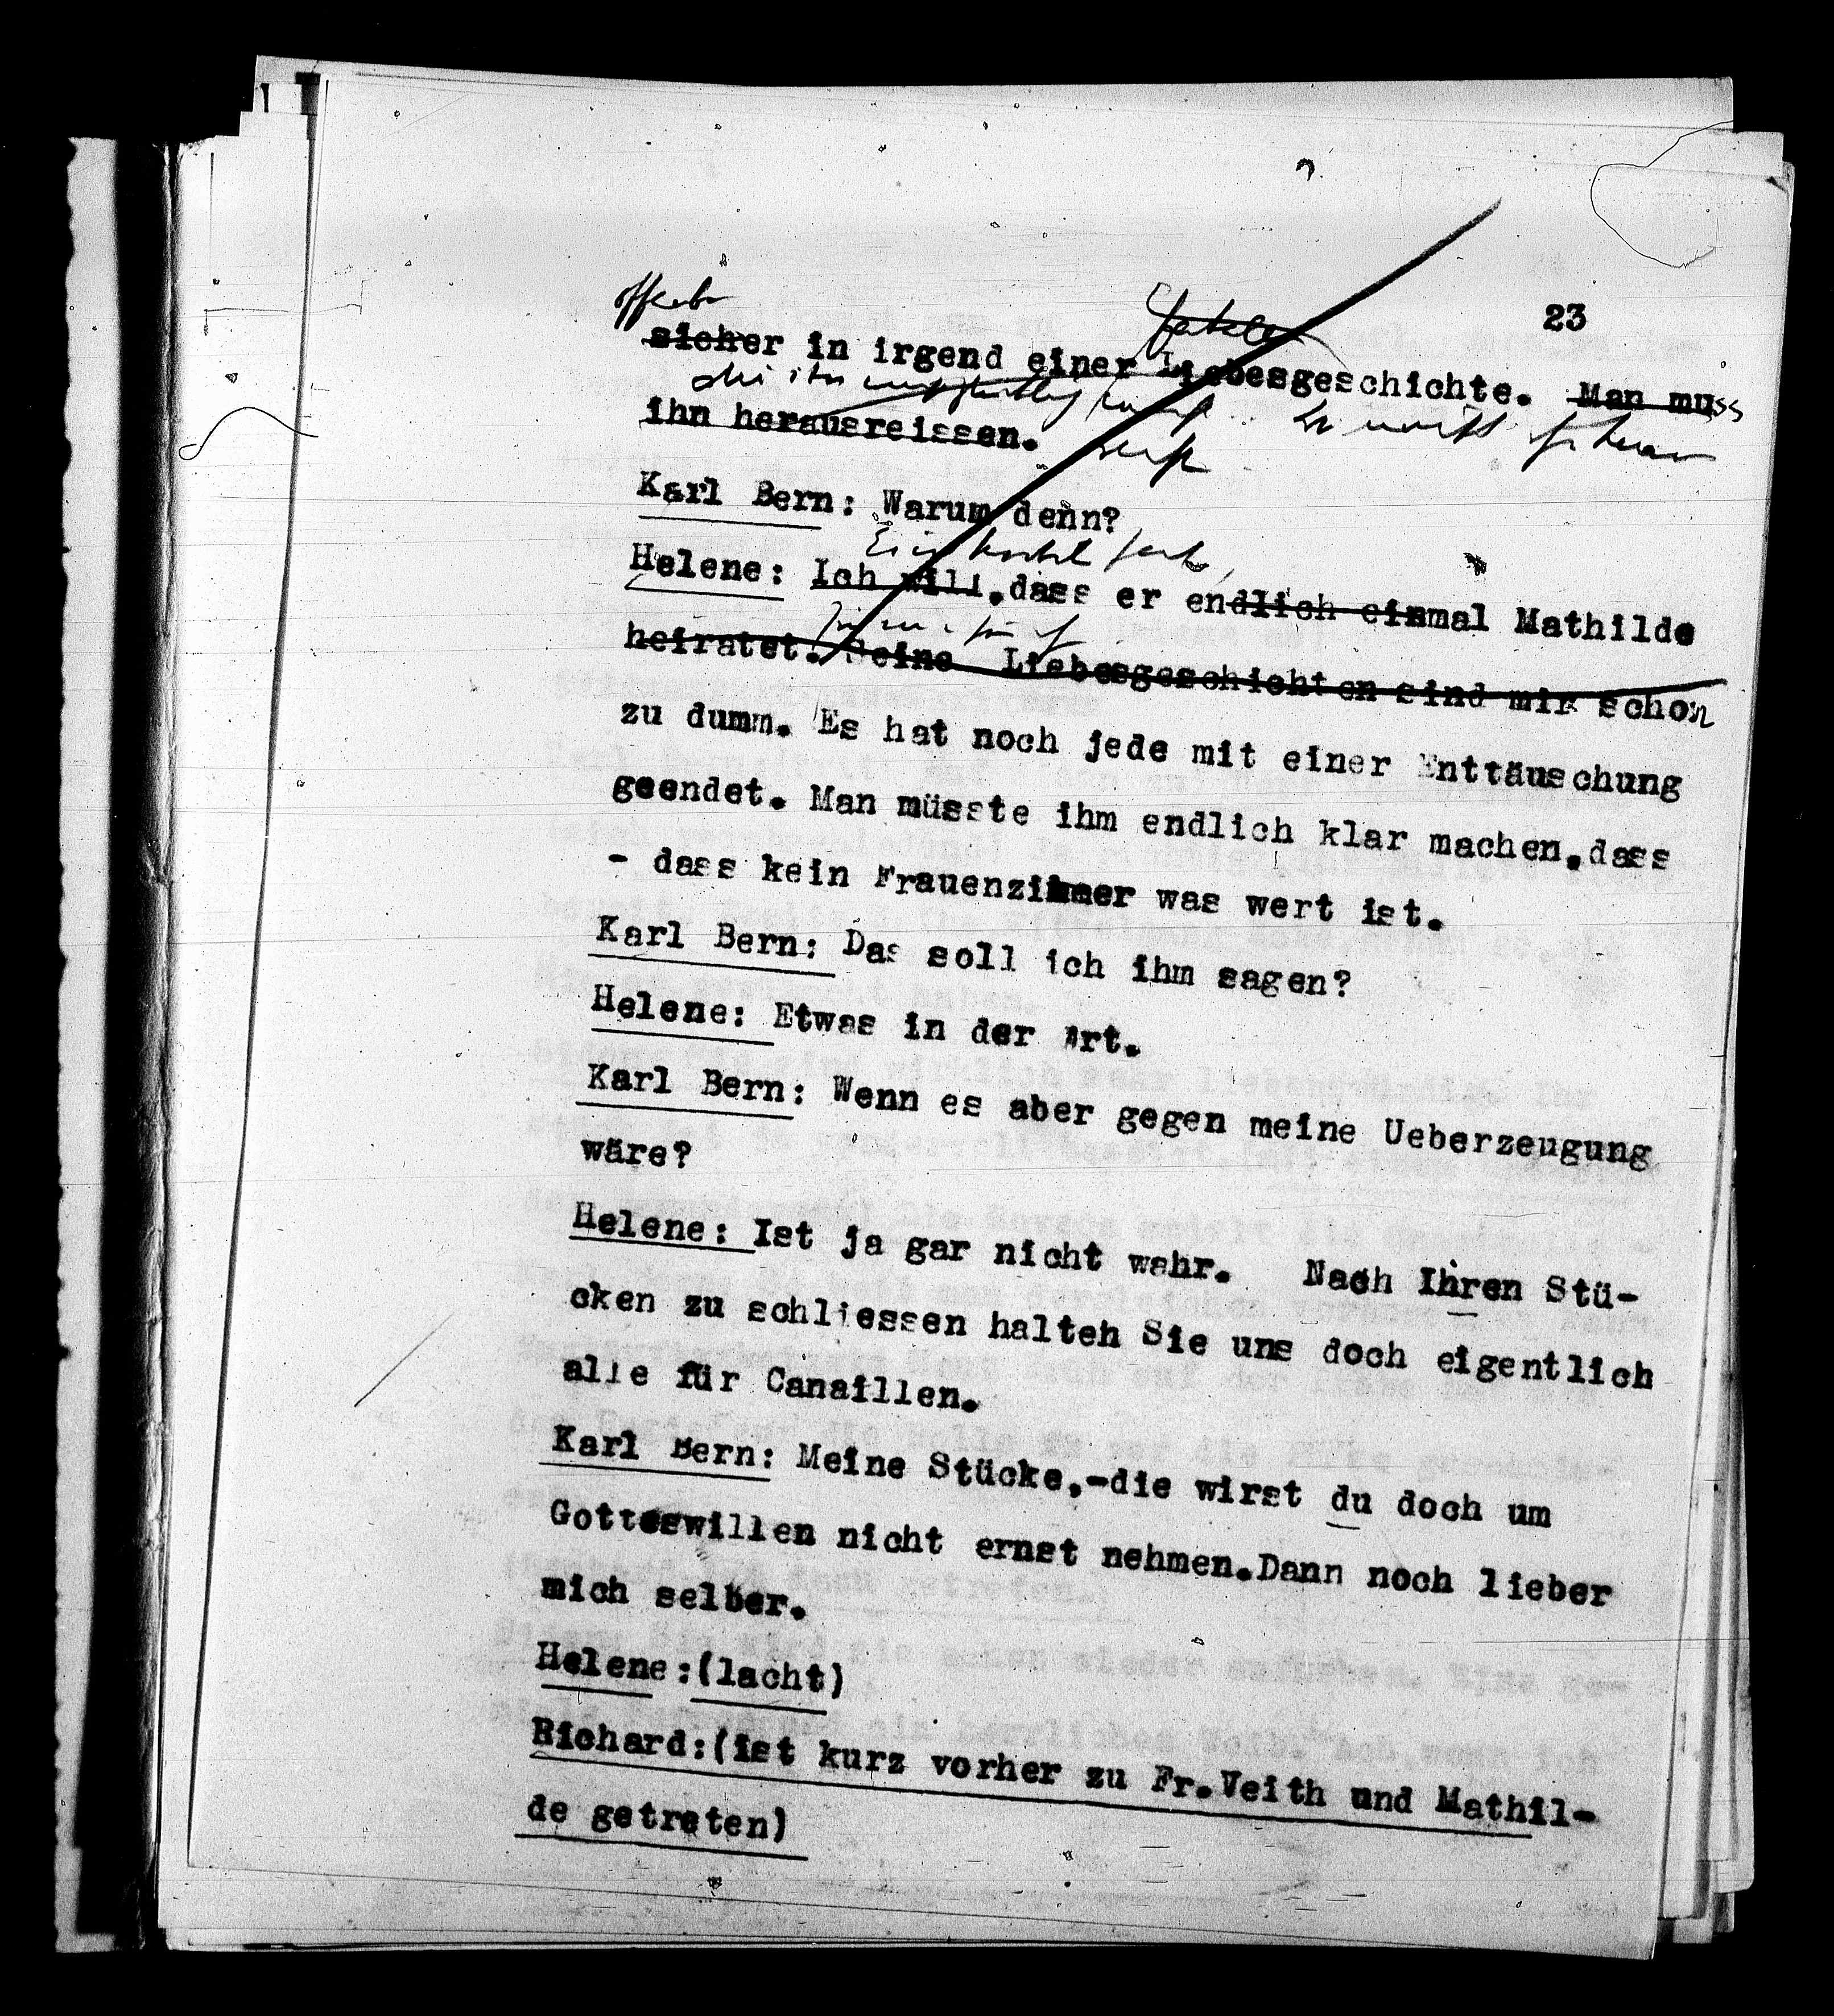 23
sicher in irgend einer Liebesgeschichte. Man muss
ihn herausreissen.
Karl Bern: Warum denn?
Helene: Ich will.dass er endlich einmal Mathilde
heiratet. Seine Liebesgeschichten sind mir schon
zu dumm. Es hat noch jede mit einer Enttäuschung
geendet. Man müsste ihm endlich klar machen.dass
- dass kein Frauenzimmer was wert ist.
Karl Bern: Das soll ich ihm sagen?
Helene: Etwas in der Art.
Karl Bern: Wenn es aber gegen meine Ueberzeugung
wäre?
Helene: Ist ja gar nicht wahr. Nach Ihren Stü-
cken zu schliessen halten Sie uns doch eigentlich
alle für Canaillen.
Karl Bern: Meine Stücke.-die wirst du doch um
Gotteswillen nicht ernst nehmen.Dann noch lieber
mich selber.
Helene:(lacht)
Richard:(ist kurz vorher zu Fr.Veith und Mathil-
de getreten)